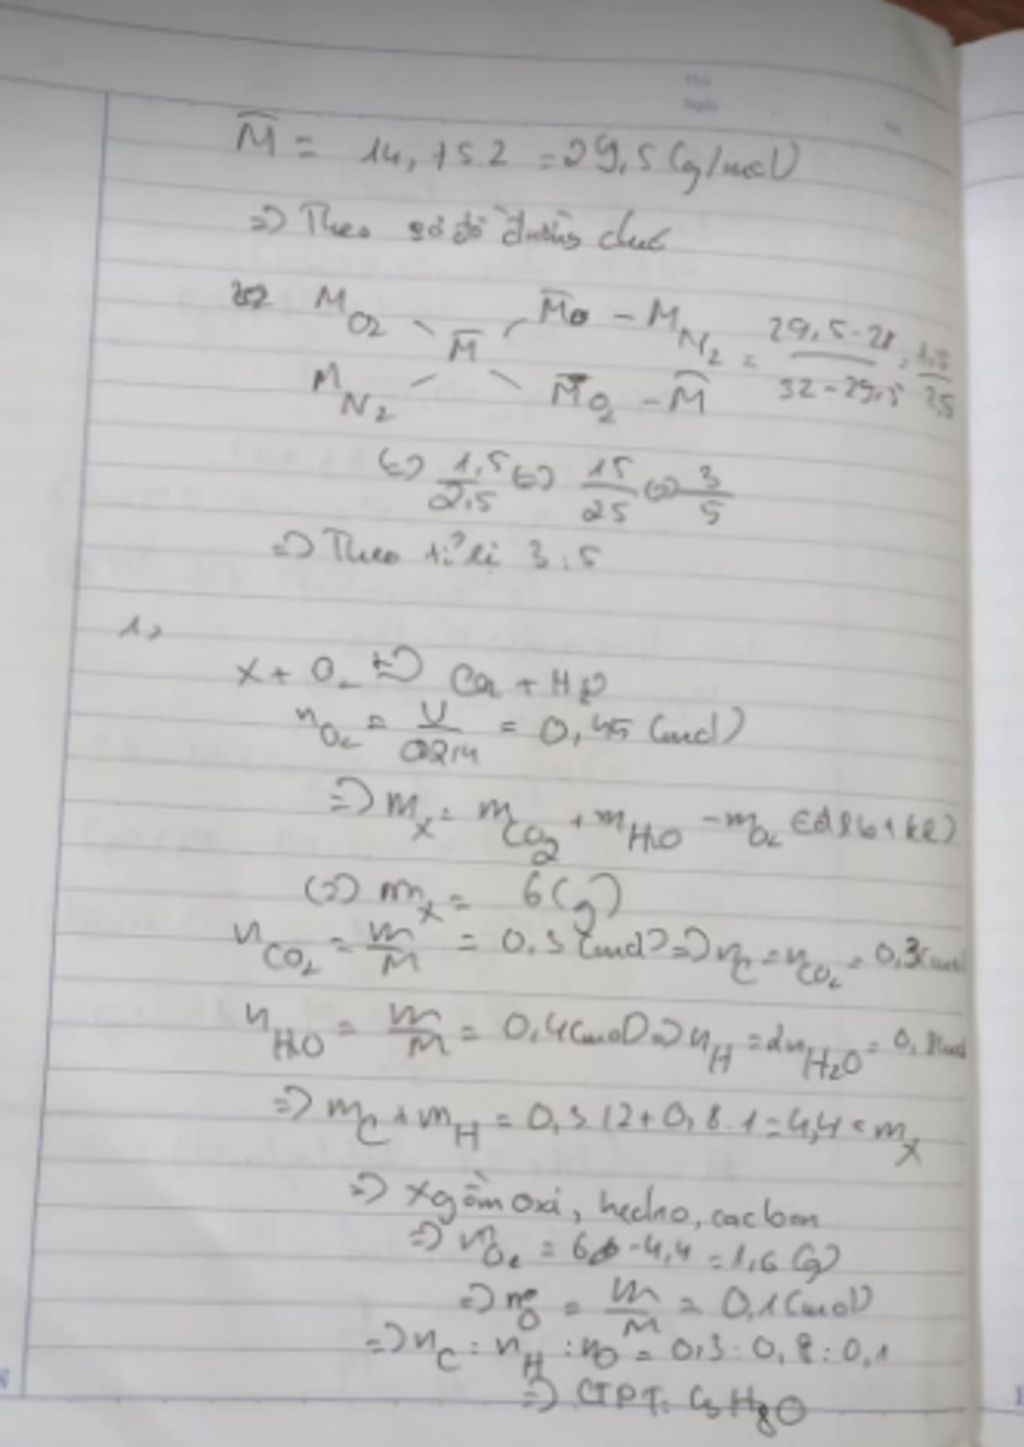 Thứ
Ngày
M̅ = 14,75 2 = 29,5 (g/mol)
=> Theo sơ đồ đường chéo
M O2 M̅ M̅ - M N2 = 29,5-28 / 32-29,5 = 1,5 / 2,5
M N2 M O2 - M̅
(=) 1,5/2,5 (=) 15/25 (=) 3/5
=> Theo tỉ lệ 3:5
1,
X + O2 => CO2 + H2O
n O2 = V/22,4 = 0,45 (mol)
=> m X = m CO2 + m H2O - m O2
(=) m X = 6 (g)
n CO2 = m/M = 0,3 (mol) => n C = n CO2 = 0,3 (mol
n H2O = m/M = 0,4 (mol) => n H = 2n H2O = 0,8 mol
=> m C + m H = 0,3 12 + 0,8.1 = 4,4 < m X
=> X gồm oxi, hiđro, cacbon
=> m O2 = 6 - 4,4 = 1,6 (g)
=> n O = m/M = 0,1 (mol)
=> n C : n H : n O = 0,3 : 0,8 : 0,1
=> CTPT: C3H8O